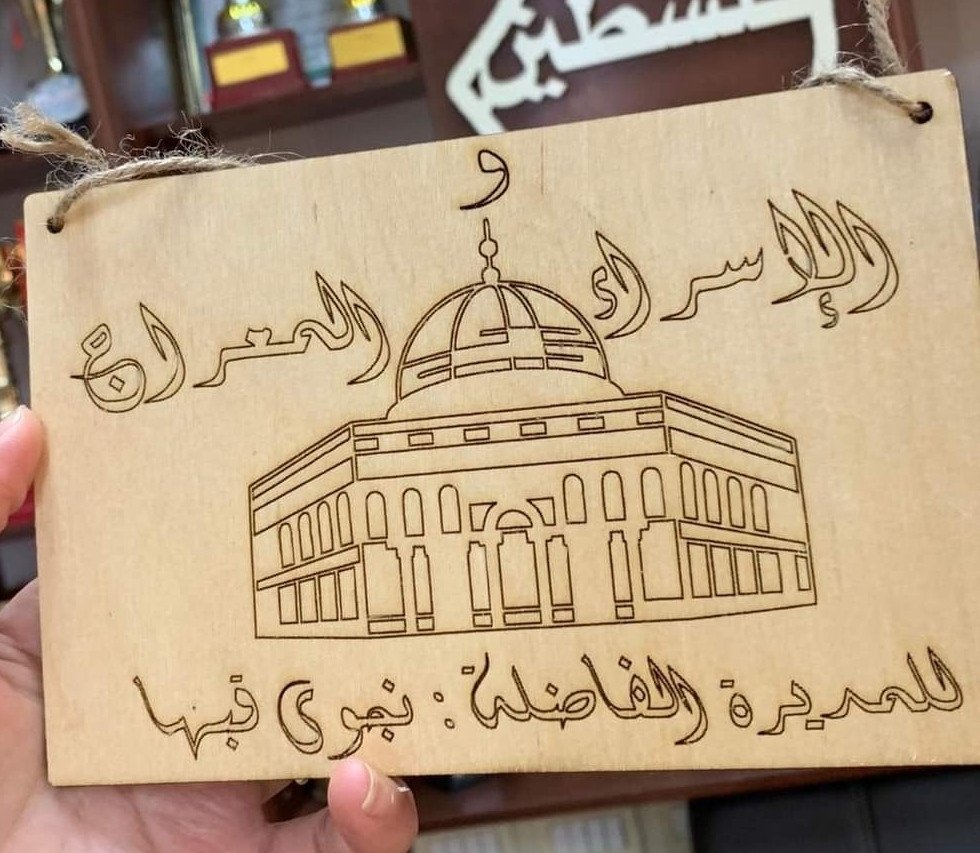 فلسطين
الإسراء و المعراج
للمديرة الفاضلة : نجوى قبها